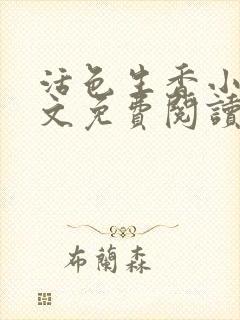 活色生香小
文免費閱讀
布蘭森